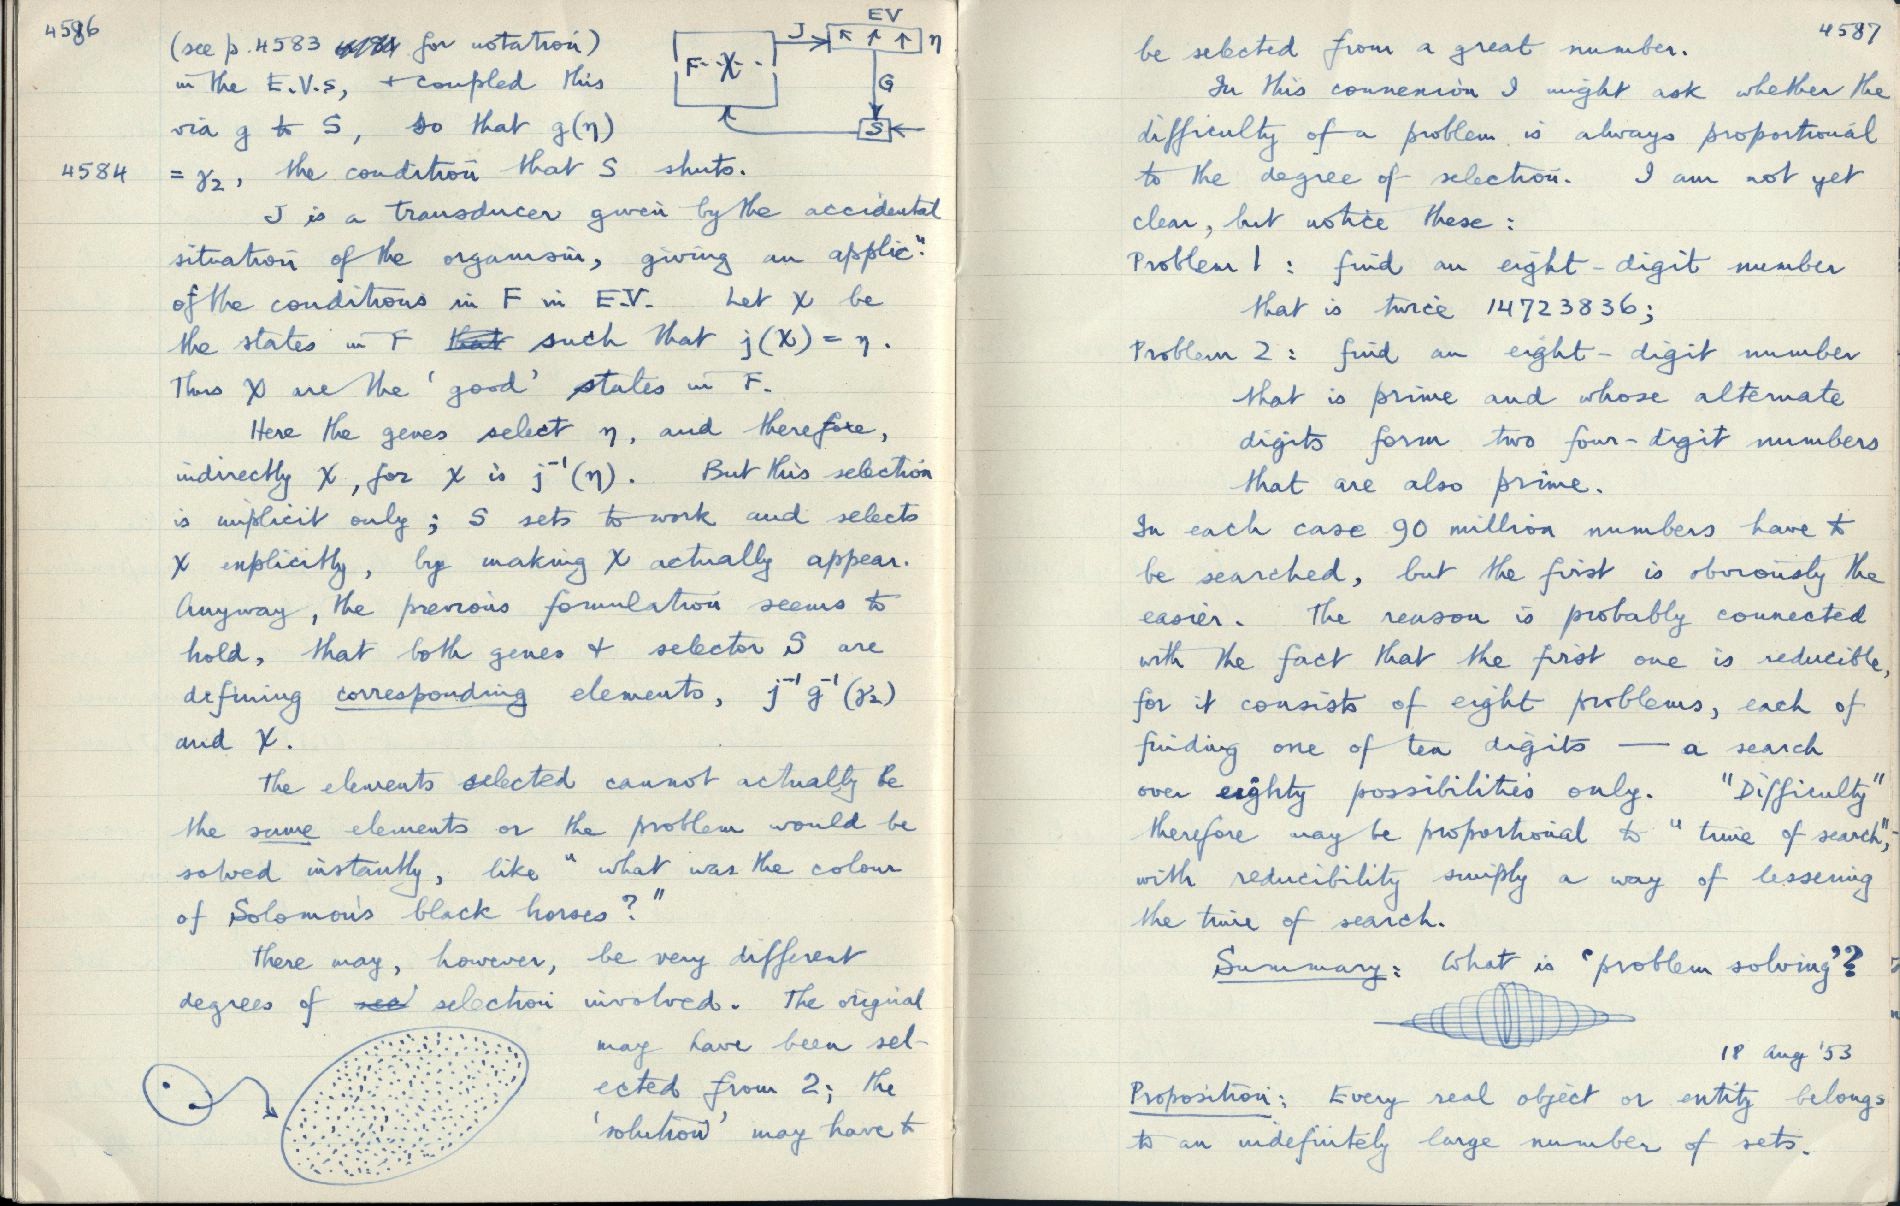 4586
(see p. 4583 for notation)
in the E.V.s, + coupled this
via g to S, so that g(η)
4584 = γ₂, the condition that S shuts.
EV
J
η
F-·X-·
G
S
J is a transducer given by the accidental
situation of the organism, giving an applicⁿ.
of the conditions in F in E.V. Let χ be
the states in F that such that j(χ) = η.
Thus χ are the 'good' states in F.
Here the genes select η, and therefore,
indirectly χ, for χ is j⁻¹(η). But this selection
is implicit only; S sets to work and selects
χ explicitly, by making χ actually appear.
Anyway, the previous formulation seems to
hold, that both genes + selector S are
defining corresponding elements, j⁻¹g⁻¹(γ₂)
and χ.
The elements selected cannot actually be
the same elements or the problem would be
solved instantly, like "what was the colour
of Solomon's black horses?"
There may, however, be very different
degrees of sel selection involved. The original
may have been sel-
ected from 2; the
'solution' may have to
4587
be selected from a great number.
In this connexion I might ask whether the
difficulty of a problem is always proportional
to the degree of selection. I am not yet
clear, but notice these:
Problem 1: find an eight-digit number
that is twice 14723836;
Problem 2: find an eight-digit number
that is prime and whose alternate
digits form two four-digit numbers
that are also prime.
In each case 90 million numbers have to
be searched, but the first is obviously the
easier. The reason is probably connected
with the fact that the first one is reducible,
for it consists of eight problems, each of
finding one of ten digits — a search
over eighty possibilities only. "Difficulty"
therefore may be proportional to "time of search",
with reducibility simply a way of lessening
the time of search.
Summary: What is 'problem solving'?
18 Aug '53
Proposition: Every real object or entity belongs
to an indefinitely large number of sets.